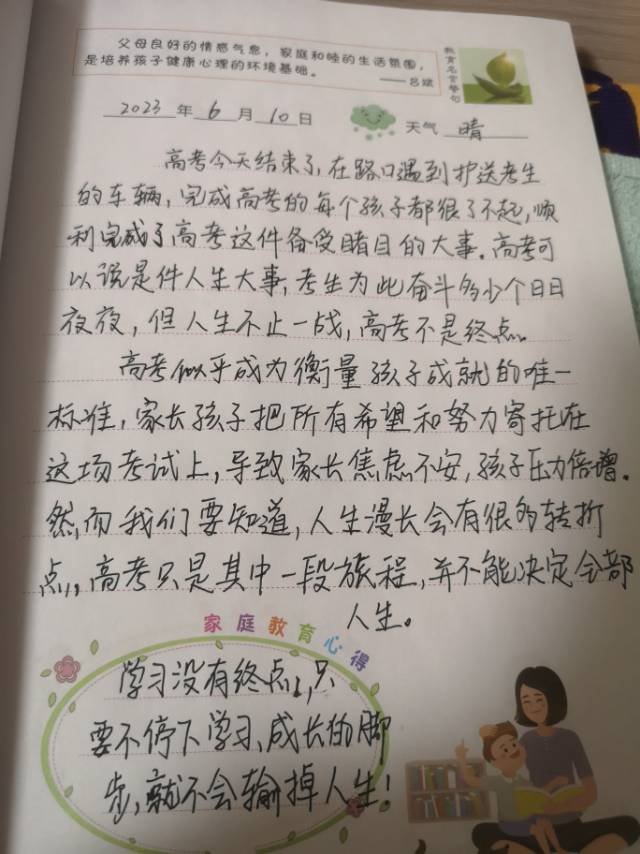 父母良好的情感气息，家庭和睦的生活氛围，
是培养孩子健康心理的环境基础。
——吕斌
教育名言警句
2023 年 6 月 10 日
天气 晴
高考今天结束了,在路口遇到护送考生
的车辆,完成高考的每个孩子都很了不起,顺
利完成了高考这件备受瞩目的大事。高考可
以说是件人生大事,考生为此奋斗多少个日日
夜夜,但人生不止一战,高考不是终点。
高考似乎成为衡量孩子成就的唯一
标准,家长孩子把所有希望和努力寄托在
这场考试上,导致家长焦虑不安,孩子压力倍增。
然而我们要知道,人生漫长会有很多转折
点,高考只是其中一段旅程,并不能决定全部
人生。
家庭教育心得
学习没有终点,只
要不停下学习、成长的脚
步,就不会输掉人生!